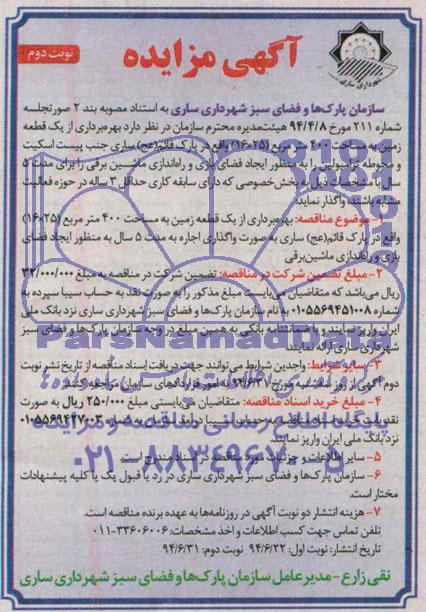 آگهی مزایده
نوبت دوم
شهرداری ساری
سازمان پارک‌ها و فضای سبز شهرداری ساری به استناد مصوبه بند ۲ صورتجلسه
شماره ۲۱۱ مورخ ۹۴/۴/۸ هیئت‌مدیره محترم سازمان در نظر دارد بهره‌برداری از یک قطعه
زمین به مساحت ۴۰۰ متر مربع (۲۵×۱۶) واقع در پارک قائم(عج) ساری جنب پیست اسکیت
و محوطه ترامپولین را به منظور ایجاد فضای بازی و راه‌اندازی ماشین برقی را برای مدت ۵
سال با مشخصات ذیل به بخش خصوصی که دارای سابقه کاری حداقل ۳ ساله در حوزه فعالیت
مشابه باشند، واگذار نماید:
۱- موضوع مناقصه: بهره‌برداری از یک قطعه زمین به مساحت ۴۰۰ متر مربع (۲۵×۱۶)
واقع در پارک قائم(عج) ساری به صورت واگذاری اجاره به مدت ۵ سال به منظور ایجاد فضای
بازی و راه‌اندازی ماشین‌برقی
۲- مبلغ تضمین شرکت در مناقصه: تضمین شرکت در مناقصه به مبلغ ۳۲/۰۰۰/۰۰۰
ریال می‌باشد که متقاضیان می‌بایست مبلغ مذکور را به صورت نقد به حساب سیبا سپرده به
شماره ۰۱۰۵۵۶۹۴۵۱۰۰۸ به نام سازمان پارک‌ها و فضای سبز شهرداری ساری نزد بانک ملی
ایران واریز نمایند و یا ضمانتنامه بانکی به همین مبلغ در وجه سازمان پارک‌ها و فضای سبز
شهرداری ساری ارائه نمایند.
۳- سایر شرایط: واجدین شرایط می‌توانند جهت دریافت اسناد مناقصه از تاریخ نشر نوبت
دوم آگهی از روز سه‌شنبه مورخ ۹۴/۶/۳۱ به امور قراردادهای سازمان مراجعه کنند.
۴- مبلغ خرید اسناد مناقصه: متقاضیان می‌بایستی مبلغ ۲۵۰/۰۰۰ ریال به صورت
نقد بابت خرید اسناد مناقصه به حساب سیبا درآمد سازمان به شماره ۰۱۰۵۵۶۹۴۴۷۰۰۳
نزد بانک ملی ایران واریز نمایند.
۵- سایر اطلاعات و جزئیات مورد مناقصه در اسناد مندرج است.
۶- سازمان پارک‌ها و فضای سبز شهرداری ساری در رد یا قبول یک یا کلیه پیشنهادات
مختار است.
۷- هزینه انتشار دو نوبت آگهی در روزنامه‌ها به عهده برنده مناقصه است.
تلفن تماس جهت کسب اطلاعات و اخذ مشخصات: ۳۳۶۰۶۰۰۶-۰۱۱
تاریخ انتشار: نوبت اول: ۹۴/۶/۲۲ نوبت دوم: ۹۴/۶/۳۱
نقی زارع - مدیرعامل سازمان پارک‌ها و فضای سبز شهرداری ساری
ParsNamadData
پایگاه اطلاع رسانی مناقصه و مزایده
۰۲۱-۸۸۳۴۹۶۷۰-۵